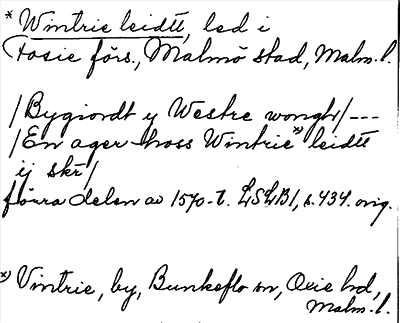 * Vintrie leidtt, led i
Fosie förs., Malmö stad, Malm. l.
/Bygiordt y Westre wongh/---
/En ager hoss Wintrie *) leidtt
ij skr/
förra delen av 1570-t. LSLB1, s. 434. orig.
*) Vintrie, by, Bunkeflo sn, Oxie hd,
Malm. l.